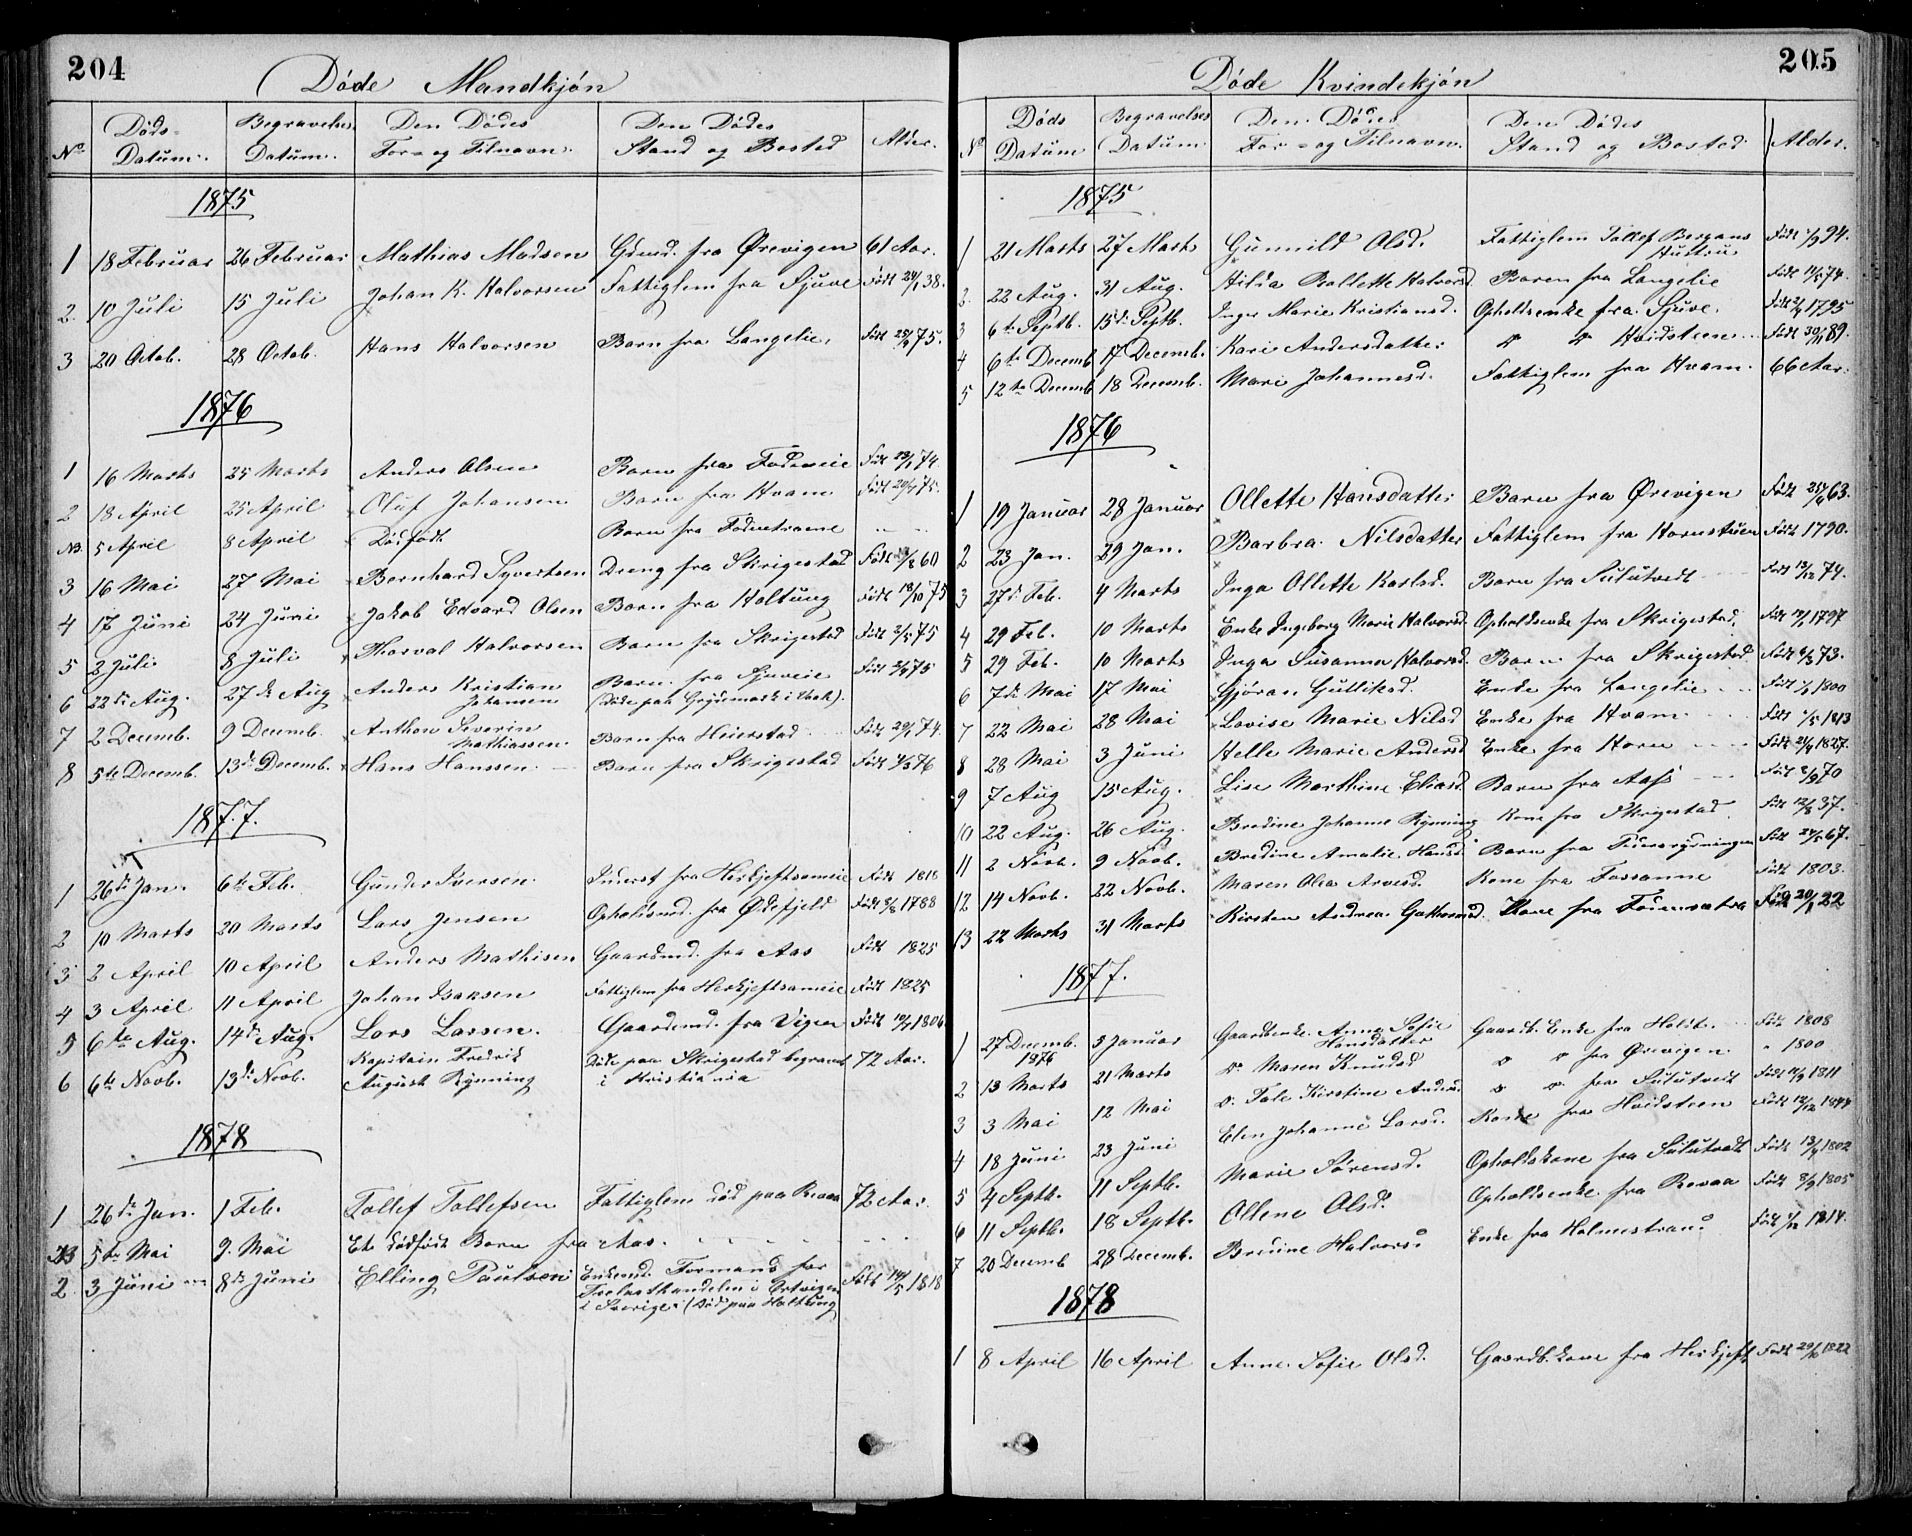 204
Døde Mandkjøn
No Døds-Datum. Begravelses Datum. Den Dødes For- og Tilnavn. Den Dødes Stand og Bosted Alder.
1875
1 18 Februar 26 Februar Mathias Madsen Grmd. fra Ørevigen 61 Aar.
2. 10 Juli 15 Juli Johan K. Halvorsen Fattiglem fra Sjuve Født 24/1 38.
3 20 Octob. 28 Octob. Hans Halvorsen Barn fra Langelie. Født 75.
1876
1 16 Marts 25 Marts Anders Olsen Barn fra Født 74.
2 18 April 25 April Oluf Johansen Barn fra Hvam Født 75.
NB. 5 April 8 April Dødfødt Barn fra
3 16 Mai 27 Mai Bernhard Syvertsen Dreng fra Skrigestad Født 60
4 17 Juni 24 Juni Jakob Edvard Olsen Barn fra Holtung Født 18/10 75
5 2 Juli 8 Juli Thorval Halvorsen Barn fra Skrigestad Født 2/5 75
6 22de Aug. 27de Aug Anders Kristian Johansen Barn fra Sjuveie Født 75
7 2 Decemb. 9 Decemb. Anthon Severin Mathiassen. Barn fra Heierstad Født 29/1 74.
8 5te Decemb. 13de Decemb. Hans Hanssen. Barn fra Skrigestad Født 76
1877.
1 26de Jan. 6te Feb. Gunder Iversen. Inderst fra Født 1818
2 10 Marts 20 Marts Lars Jensen Opholdsmd. fra Ødefjeld Født 1788
3 2 April 10 April Anders Mathisen Gaardmd. fra Aas Født 1825
4 3 April 11 April Johan Isaksen Fattiglem fra Født 1825
5 6te Aug. 14de Aug. Lars Larsen. Gaardmd. fra Vigen Født 1806.
6 6te Novb. 13de Novb. Kapitain Fredrik August Rynning Døde paa Skrigestad begravet i Kristiania 72 Aar.
1878
1 26de Jan. 1 Feb. Tollef Tollefsen Fattiglem død paa Revaa 72 Aar.
NB 5te Mai 9. Mai Et dødfødt Barn fra Aas.
2 3 Juni 8de Juni Elling Paulsen Enkemd. Formand for Trelasthandelen i Ortvigen i Sverige. (Død paa Holtung Født 14/5 1818
205
Døde Kvindekjøn
No Døds Datum Begravelses Datum Den Dødes For- og Tilnavn. Den Dødes Stand og Bosted Alder.
1875
1 21 Marts 27 Marts Gunnild Olsd. Fattiglem Tollef Bergans Hustru Født 94.
2. 22 Aug. 31 Aug. Hilda Rollette Halvorsd Barn fra Langelie Født 74.
3 6te Septb. 15de Septb. Inger Marie Kristiansd. Opholdsenke fra Sjuve. Født 1795
4 6te Decemb 17 Decemb. Kari Andersdatter Do Do Hvidsteen Født 30/11 89.
5 12te Decemb 18 Decemb. Mari Johannesd. Fattiglem fra Hvam. 66 Aar.
1876
1 19 Januar 28 Januar Ollette Hansdatter Barn fra Ørevigen Født 63.
2 23 Jan. 29 Jan. Barbra Nilsdatter Fattiglem fra Hornstuen Født 1790.
3 27de Feb. 4 Marts Inga Ollette Karlsd. Barn fra Sulutvedt Født 13/12 74.
4 29 Feb. 10 Marts Enke Ingeborg Marie Halvorsd. Opholdsenke fra Skrigestad. Født 1797
5 29 Feb. 10 Marts Inga Susanna Halvorsd. Barn fra Skrigestad Født 73.
6 7de Mai 17 Mai Gjøran Gullikd. Enke fra Langelie Født 1800
7 22 Mai 28 Mai Lovise Marie Nilsd Enke fra Hvam. Født 1813
8 28 Mai 3 Juni Helle Marie Andersd Enke fra Horn Født 1827.
9 7 Aug 15 Aug. Lise Marthine Eliasd. Barn fra Aas Født 70
10 22 Aug. 26 Aug. Bredine Johanne Rynning Kone fra Skrigestad Født 37.
11 2 Novb. 9 Novb. Bredine Amalie Hansd. Barn fra Født 67.
12 14 Novb. 22 Novb. Maren Olea Arvesd. Kone fra Fossanne Født 1803.
13 22 Marts 31 Marts Kirsten Andrea Kone fra Født 20/1 22
1877.
1 27 Decemb. 1876 5 Januar Gaardenke. Anne Sofie Hansdatter Gaardb. Enke fra Holst. Født 1808
2 13 Marts 21 Marts Do Maren Knudsd Do Do fra Ørevigen. " 1800
3 3 Mai 12 Mai Do. Tale Kirstine Andersd. Do Do fra Sulutvedt Født 1811
4 18 Juni 23 Juni Elen Johanne Larsd. Kone fra Hvidsteen Født 1844
5 4 Septb. 11 Septb. Marie Sørensd. Opholdskone fra Sulutvedt Født 13/4 1802
6 11 Septb. 18 Septb. Ollene Olsd. Opholdsenke fra Revaa Født 1805
7 20 Decemb 28 Decemb. Bredine Halvorsd Enke fra Holmestrand Født 1814.
1878
1 8 April 16 April Anne Sofie Olsd. Gaardb. kone fra Født 1822